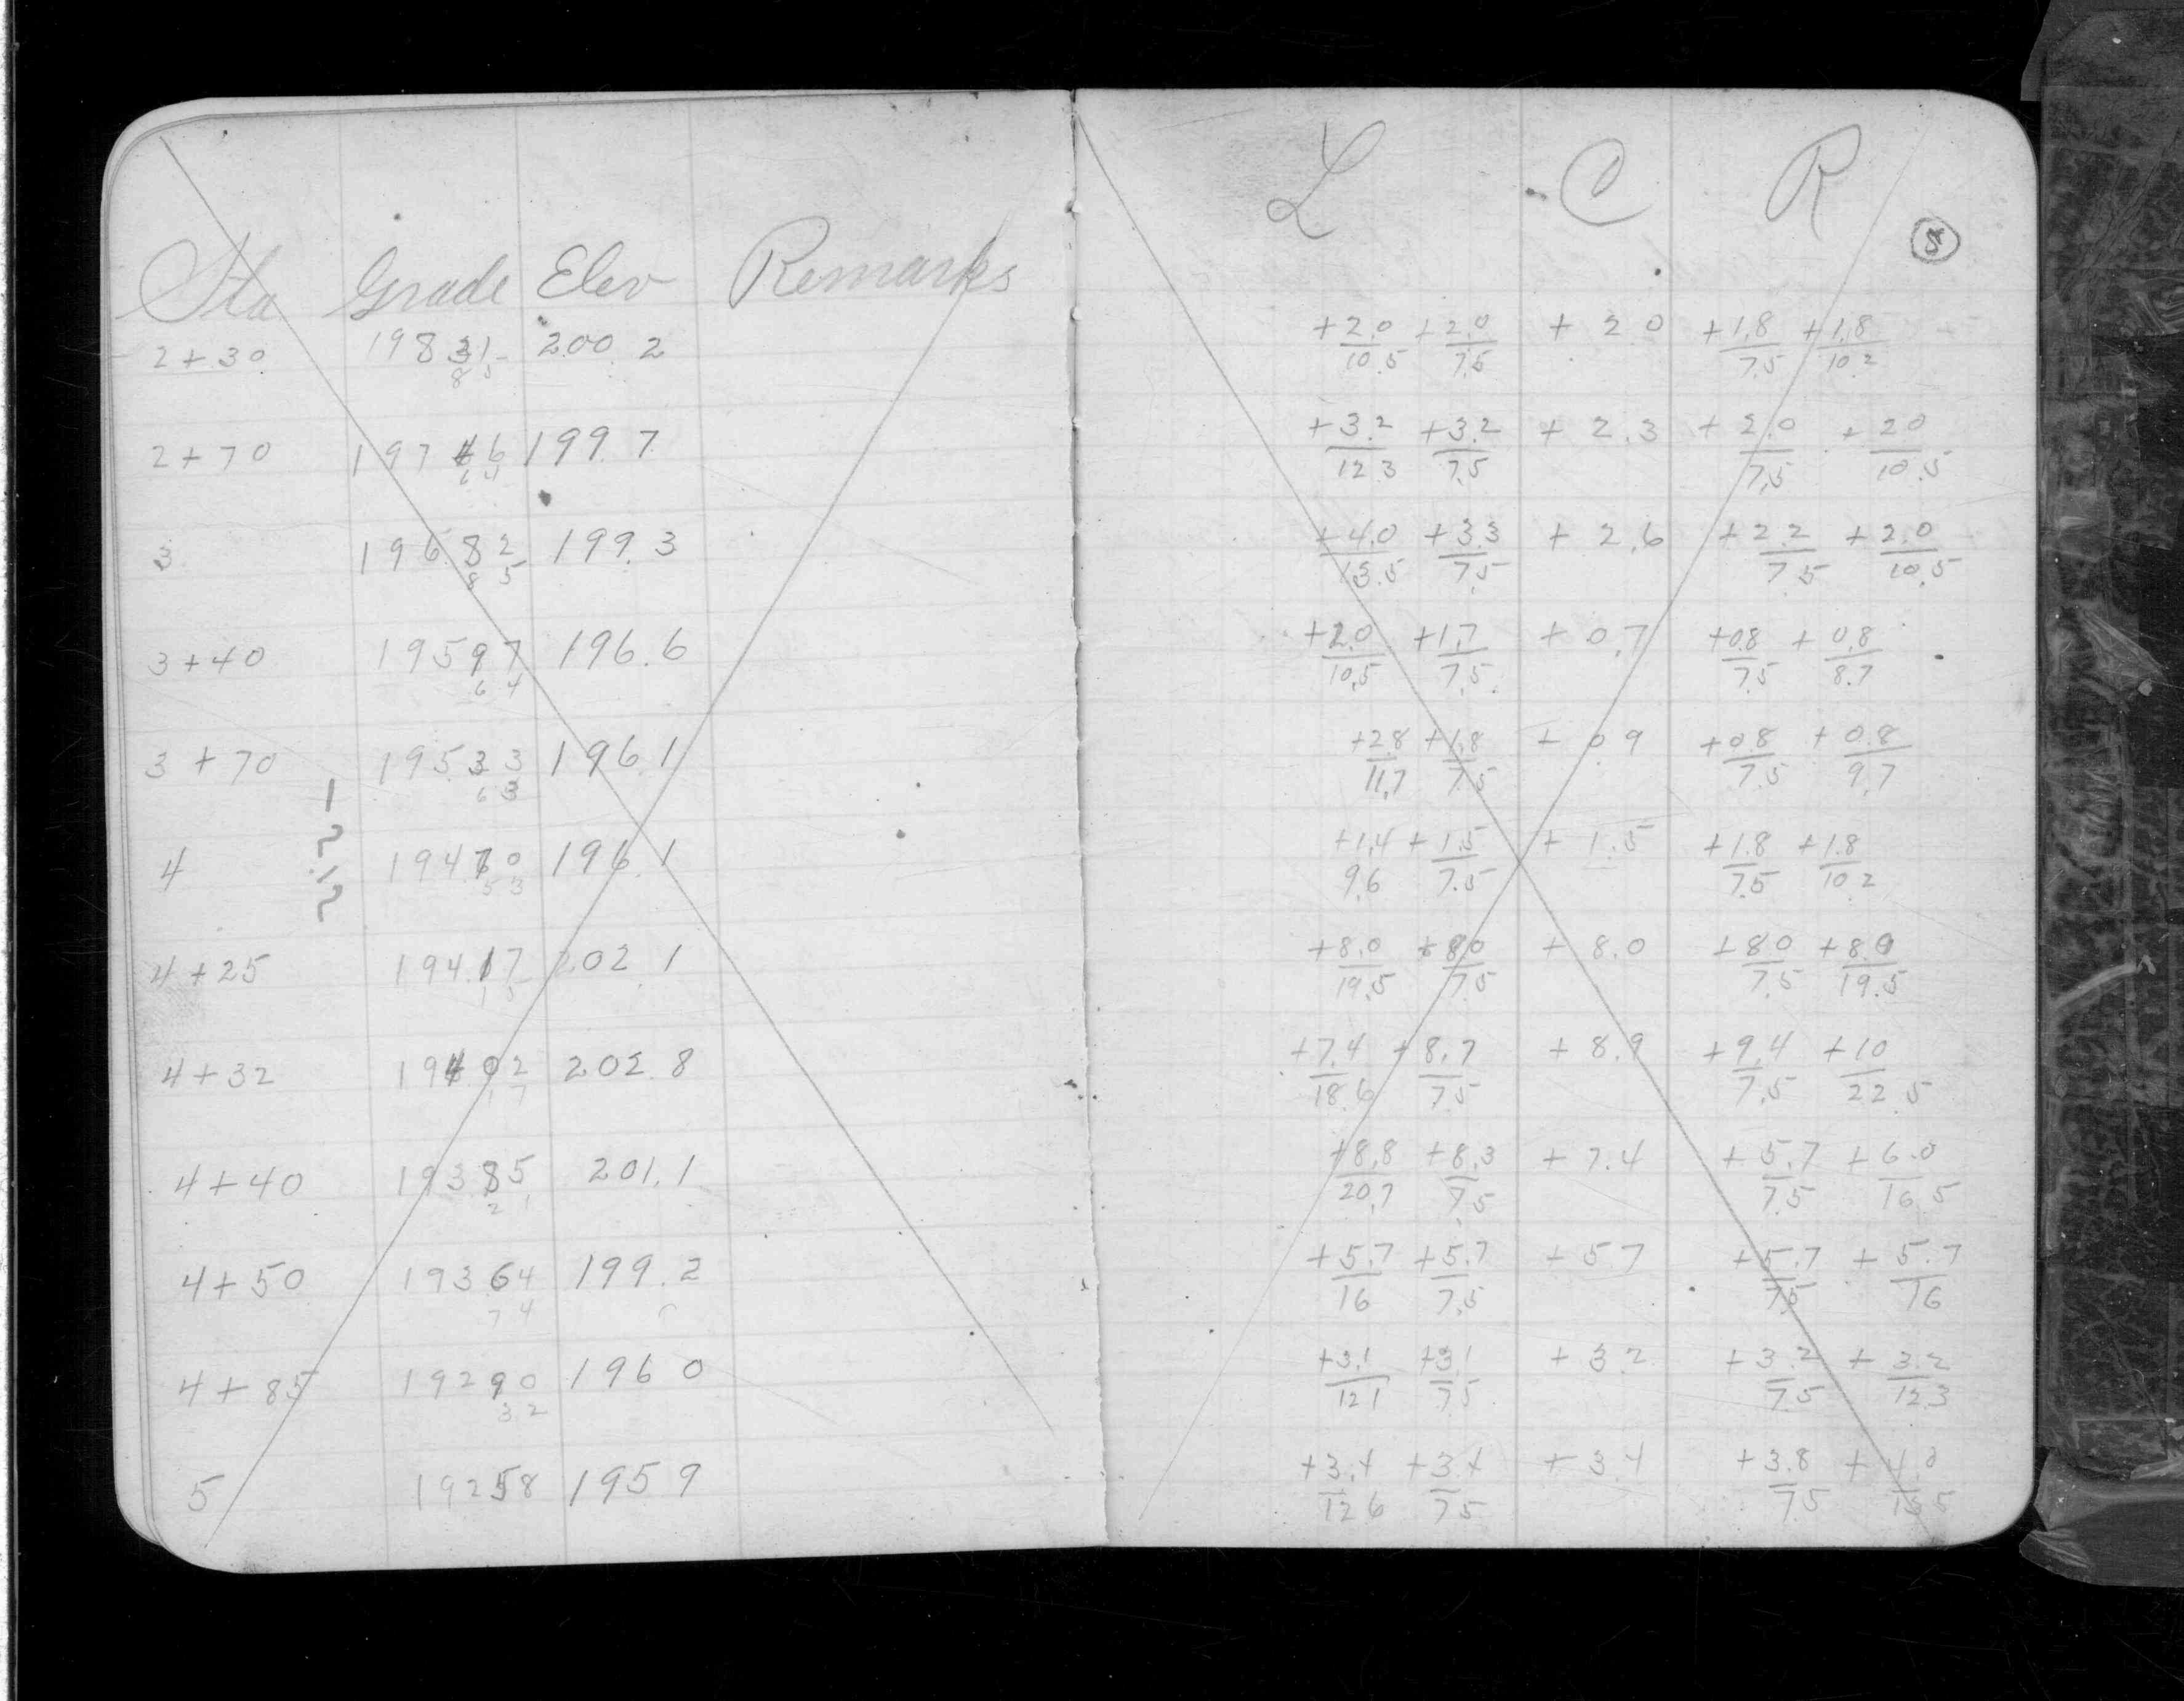 Sta Grade Elev Remarks
L C R
5
2+30 198 31 200.2 +2.0/10.5 +2.0/7.5 +2.0 +1.8/7.5 +1.8/10.2
8 5
2+70 197 46 199.7 +3.2/12.3 +3.2/7.5 +2.3 +2.0/7.5 +2.0/10.5
6 4
3 196.82 199.3 +4.0/13.5 +3.3/7.5 +2.6 +2.2/7.5 +2.0/10.5
8 5
3+40 195 97 196.6 +2.0/10.5 +1.7/7.5 +0.7 +0.8/7.5 +0.8/8.7
6 4
3+70 195.33 196.1 +2.8/11.7 +1.8/7.5 +0.9 +0.8/7.5 +0.8/9.7
6 3
-2.12
4 194.70 196.1 +1.4/9.6 +1.5/7.5 +1.5 +1.8/7.5 +1.8/10.2
5 3
4+25 194.17 202.1 +8.0/19.5 +8.0/7.5 +8.0 +8.0/7.5 +8.0/19.5
1 5
4+32 194 02 202.8 +7.4/18.6 +8.7/7.5 +8.9 +9.4/7.5 +10/22.5
1 7
4+40 193 85 201.1 +8.8/20.7 +8.3/7.5 +7.4 +5.7/7.5 +6.0/16.5
2 1
4+50 193 64 199.2 +5.7/16 +5.7/7.5 +5.7 +5.7/7.5 +5.7/16
7 4
4+85 192 90 196 0 +3.1/12.1 +3.1/7.5 +3.2 +3.2/7.5 +3.2/12.3
3 2
5 192 58 195 9 +3.4/12.6 +3.4/7.5 +3.4 +3.8/7.5